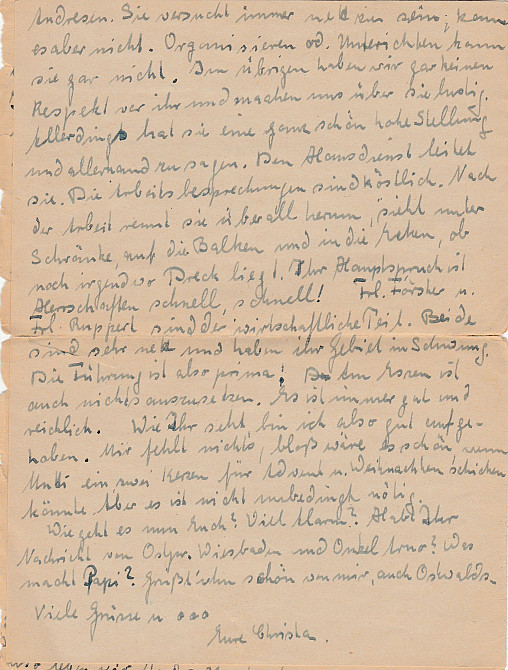 Andresen. Sie versucht immer nett zu sein, kann
es aber nicht. Organisieren od. Unterichten, kann
sie gar nicht. Im übrigen haben wir gar keinen
Respekt vor ihr und machen uns über sie lustig.
Allerdings hat sie eine ganz schön hohe Stellung
und allerhand zu sagen. Den Hausdienst leitet
sie. Die Arbeitsbesprechungen sind köstlich. Nach
der Arbeit rennt sie überall herum, sieht unter
Schränke, auf die Balken und in die Ecken, ob
noch irgendwo Dreck liegt. Ihr Hauptspruch ist
Herschaften schnell, schnell! Frl. Förster u.
Frl. Ruppert sind der wirtschaftliche Teil. Beide
sind sehr nett und haben ihr Gebiet in Schwung.
Die Führung ist also prima! Am Essen ist
auch nichts auszusetzen. Es ist immer gut und
reichlich. Wie Ihr seht bin ich also gut aufge-
haben. Mir fehlt nichts, bloß wäre es schön, wenn
Mutti ein zwei Kerzen für Advent u. Weihnachten schicken
könnte. Aber es ist nicht unbedingt nötig.
Wie geht es nun Euch? Viel Alarm? Habt Ihr
Nachricht von Ostpr. Wiesbaden und Onkel Arno? Was
macht Papi? Grüßt ihn schön von mir, auch Oswalds.
Viele Grüsse u ooo
Eure Christa.